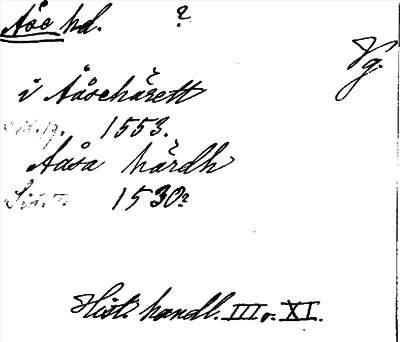 Åse hd. ?
Vg.
i Aåsehärett
1553.
Aåsa härdh
1530?
Hist. handl. III o. XI.